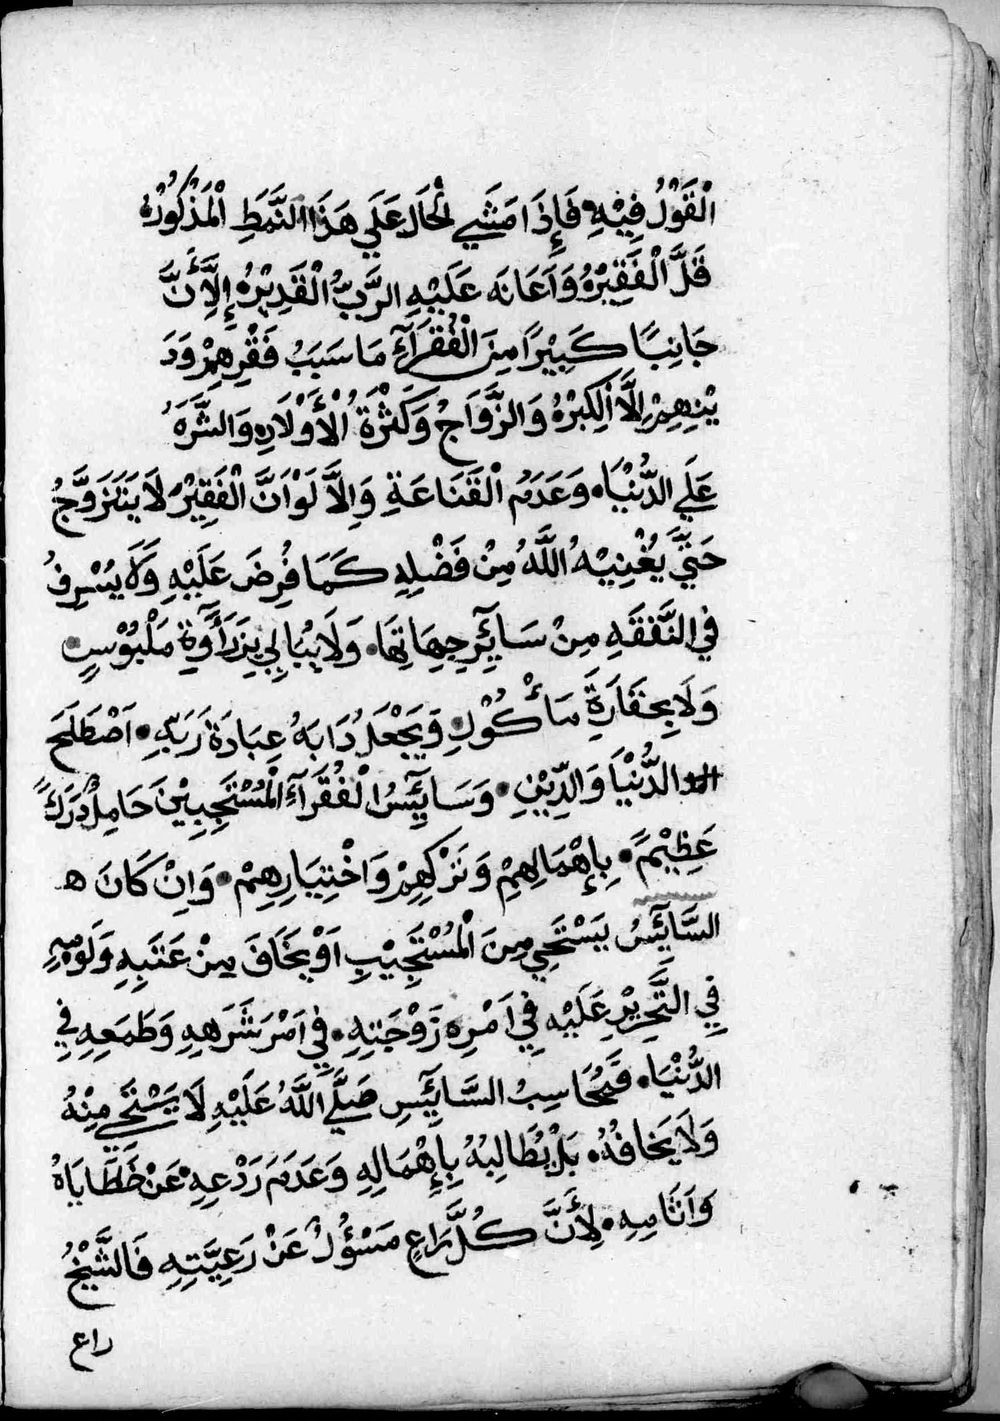 الْقَوْلُ فِيْهِ فَإِذَا مَشَي لْحَال عَلَي هَذَا النَّمَطِ الْمَذْكُوْرْ
قَلَّ الْفَقِيْرْ وَاَعَانَه عَلَيْهِ الرَّبُّ الْقَدِيْرُ إِلَّا أَنَّ
جَانِبًا كَبِيْرًا مِنَ الْفُقَرَآءِ مَا سَبَبُ فَقْرِهِمْ وَدَ
يْنِهِمْ إِلَّا الْكِبْرُ وَالزَّوَاجُ وَكَثْرَةُ الْأَوْلَادِ وَالشَّرَهُ
عَلَي الدُّنْيَا وَعَدَمُ الْقَنَاعَةِ وَاِلَّا لَوْ اَنَّ الْفَقِيْرَ لَا يَتَزَوَّجُ
حَتَّي يُغْنِيْهُ اللَّهُ مِنْ فَضْلِهِ كَمَا فُرِضَ عَلَيْهِ وَلَا يُسْرِفُ
فِي النَّفَقَهِ مِنْ سَآئِرِ جِهَاتِهَا وَلَا يُبَالِي بِرَدَآوَةِ مَلْبُوْسٍ
وَلَا بِحَقَارَةِ مَأْكُوْلٍ وَيَجْعَلُ دَابَهُ عِبَادَةُ رَبِّهِ اَصْطَلَحَ
الد الدُّنْيَا وَالدِّيْنِ وَسَآيِسُ الْفُقَرَآءِ الْمُسْتَجِبِيْنَ حَامِلٌ دَرَكًا
عَظِيْمً بِإِهْمَالِهِمْ وَتَرْكِهِمْ وَاخْتِيَارِهِمْ وَاِنْ كَانَ ه
السَّآيِسُ يَسْتَحِي مِنَ الْمُسْتَجِيْبِ اَوْ يَخَافَ مِنْ عَتَبِهِ وَلَوْمِهِ
فِي التَّحْرِيْرِ عَلَيْهِ فِي اَمْرِهِ زَوْجَتِهِ فِي اَمْرِ شَرَهِهِ وَطَمَعِهِ فِي
الدُّنْيَا فَمُحَاسِبُ السَّآيِسِ صَلَّي اللَّهُ عَلَيْهِ لَا يَسْتَحِي مِنْهُ
وَلَا يَخَافُهُ بَلْ يُطَالِبُهُ بِإِهْمَالِهِ وَعَدَمَ رَدْعِهِ عَنْ خَطَايَاهُ
وَاَثَامِهِ لِأَنَّ كُلَّ رَاعٍ مَسْؤُلٌ عَنْ رَعِيَّتِهِ فَالشَّيْخُ
راع